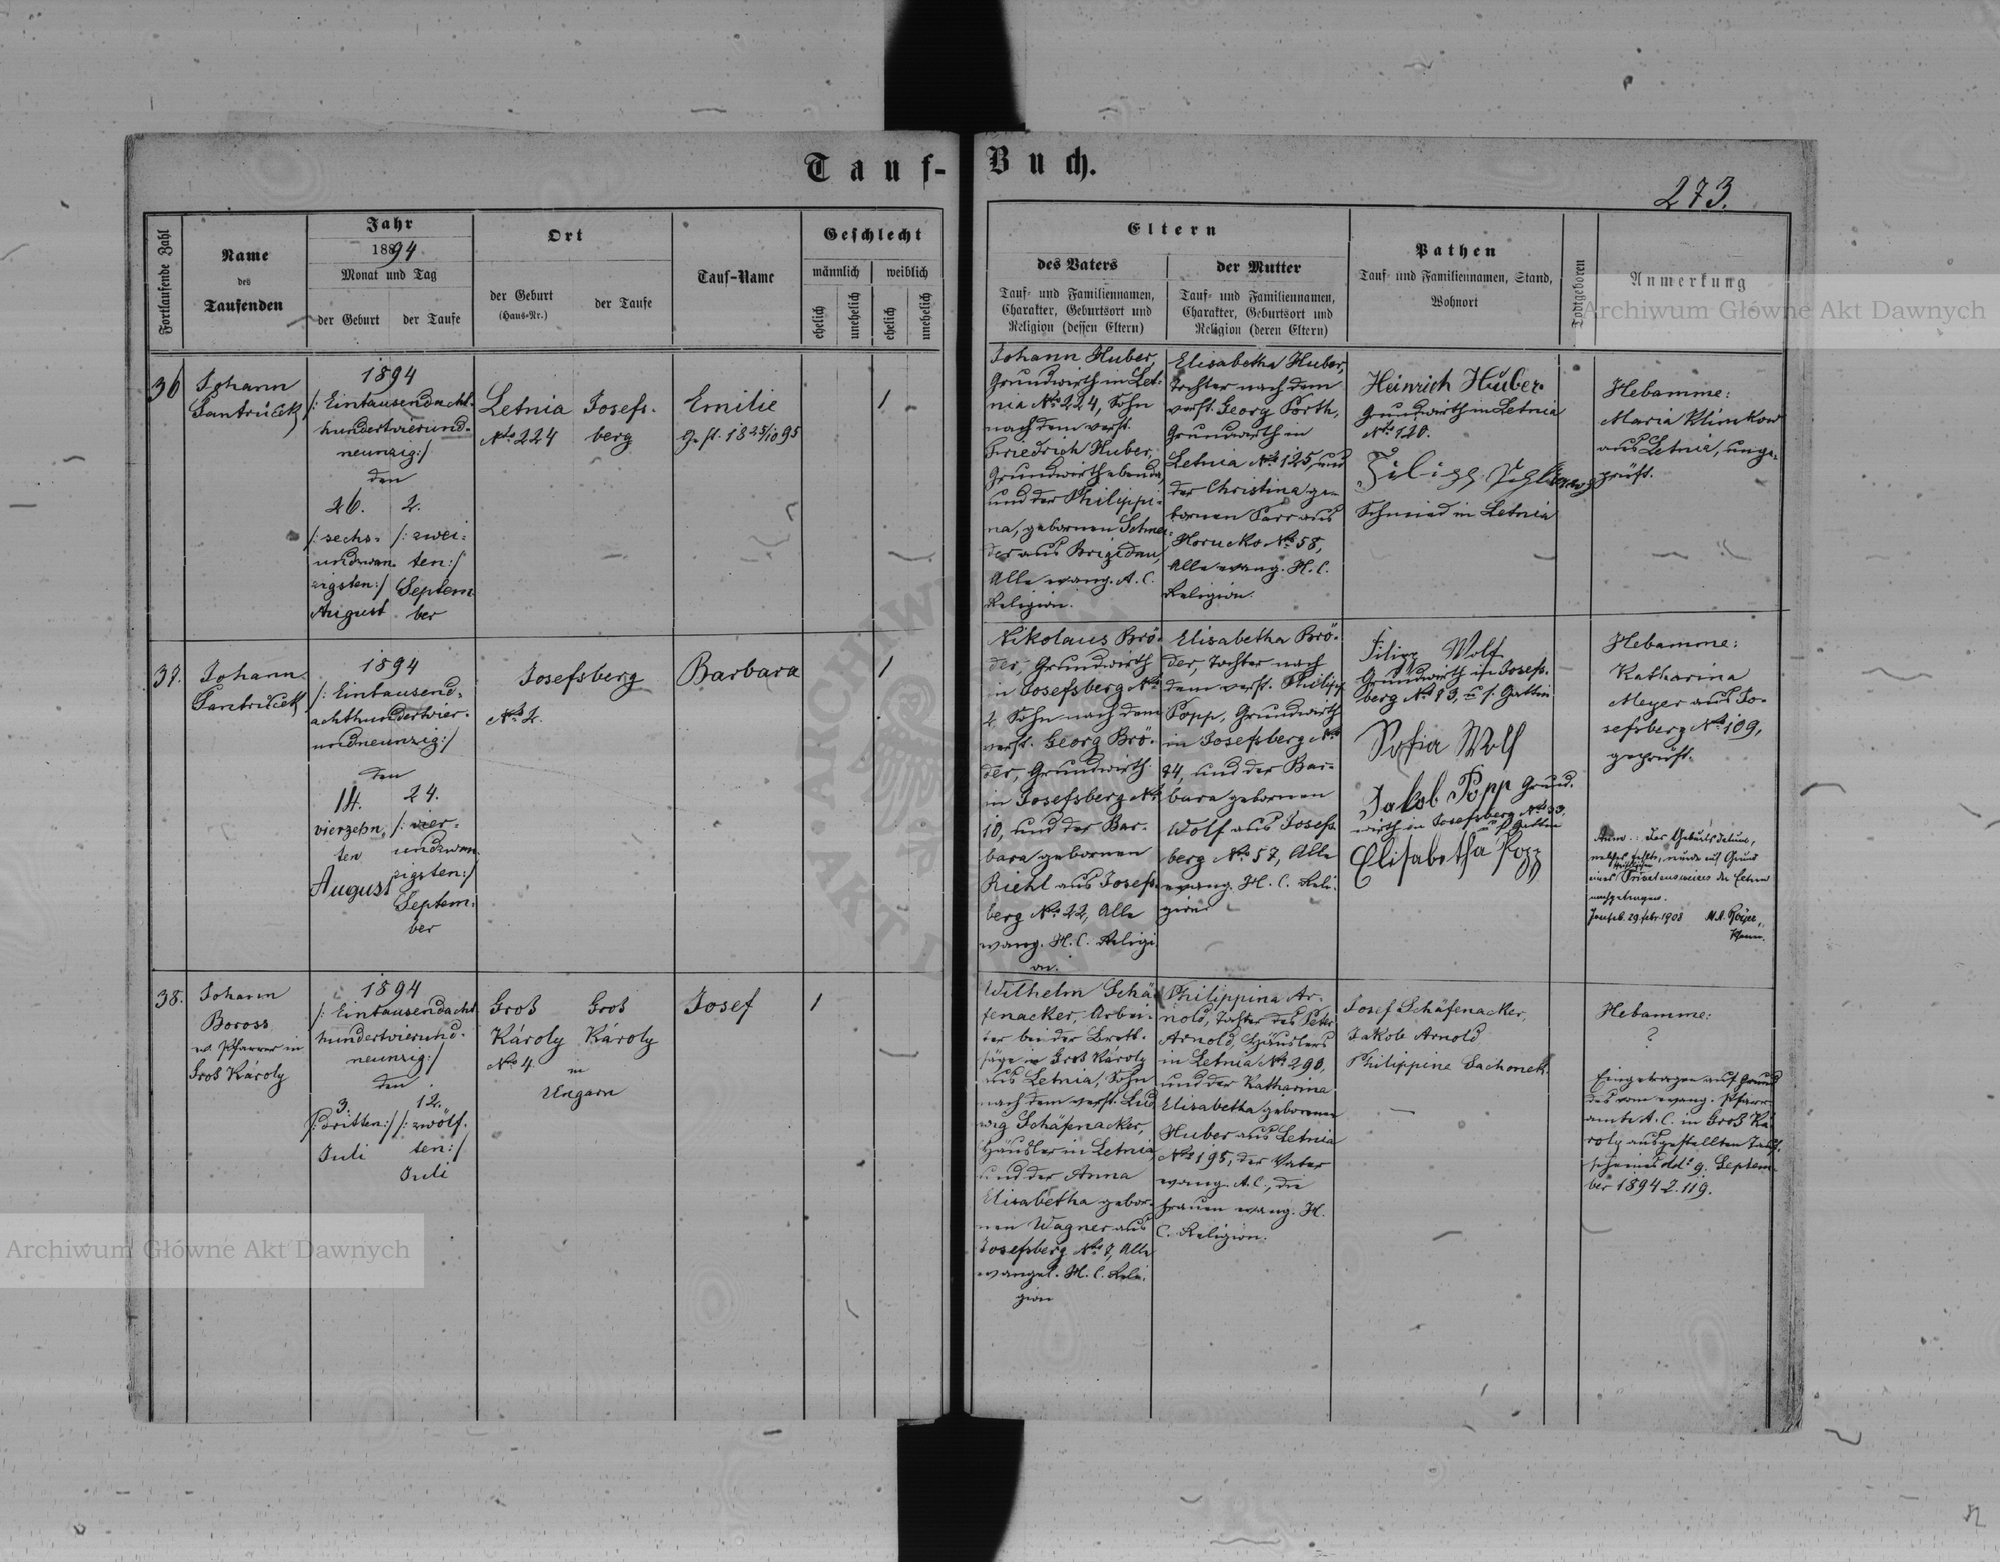 Tauf-Buch.
273.
Fortlaufende Zahl
Name
des
Taufenden
Jahr
1894
Monat und Tag
der Geburt
der Taufe
Ort
der Geburt
(Haus-Nr.)
der Taufe
Tauf-Name
Geschlecht
männlich
weiblich
ehelich
unehelich
ehelich
unehelich
Eltern
des Vaters
Tauf- und Familiennamen,
Charakter, Geburtsort und
Religion (dessen Eltern)
der Mutter
Tauf- und Familiennamen,
Charakter, Geburtsort und
Religion (deren Eltern)
Pathen
Tauf- und Familiennamen, Stand,
Wohnort
Todtgeboren
Anmerkung
36
Johann
Pantrůček
1894
/: Eintausendacht-
hundertvierund-
neunzig :/
den
26.
/: sechs-
undzwan-
zigsten :/
August
2.
/: zwei-
ten :/
Septem
ber
Letnia
No 224
Josefs-
berg
Emilie
Gest. 18 25/10 95
1
Johann Huber,
Grundwirth in Let-
nia No 224, Sohn
nach dem verst.
Friedrich Huber,
Grundwirth ebenda,
und der Philippi-
na, gebornen Schnei-
der aus Brigidau,
Alle evang. A. C.
Religion.
Elisabetha Huber,
Tochter nach dem
verst. Georg Porth,
Grundwirth in
Letnia No 125, und
der Christina ge-
bornen Parr aus
Horucko No 58,
Alle evang. H. C.
Religion.
Heinrich Huber
Grundwirth in Letnia
No 120.
Schmied in Letnia
Hebamme:
Maria Klimkow
aus Letnia, unge-
prüft.
37.
Johann
Pantrůček
1894
/: Eintausend-
achthundertvier-
undneunzig :/
den
14.
vierzehn-
ten
August
24.
/: vier-
undzwan
zigsten :/
Septem-
ber
Josefsberg
No 2.
Barbara
1
Nikolaus Brö-
der, Grundwirth
in Josefsberg No
2, Sohn nach dem
verst. Georg Brö-
der, Grundwirth
in Josefsberg No
10, und der Bar-
bara gebornen
Riehl aus Josefs-
berg No 22, Alle
evang. H. C. Religi
on.
Elisabetha Brö-
der, Tochter nach
dem verst. Philipp
Popp, Grundwirth
in Josefsberg No
44, und der Bar-
bara gebornen
Wolf aus Josefs-
berg No 57, Alle
evang. H. C. Reli-
gion.
Filipp Wolf
Grundwirth in Josefs-
berg No 93, u. s. Gattin
Sofia Wolf
Jakob Popp Grund-
wirth in Josefsberg No 33
u. s. Gattin
Elisabetha Popp
Hebamme:
Katharina
Meyer aus Jo-
sefsberg No 109,
geprüft.
Anm.: Das Geburtsdatum,
welches fehlte, wurde auf Grund
eines Privatausweises der Eltern
nachgetragen.
29. febr. 1908
38.
Johann
Boross
ev. Pfarrer in
Groß Károly
1894
/: Eintausendacht
hundertvierund-
neunzig :/
den
3.
/: dritten :/
Juli
12.
/: zwölf-
ten :/
Juli
Groß
Károly
No 4.
Groß
Károly
in
Ungarn
Josef
1
Wilhelm Schä-
fenacker, Arbei-
ter bei der Brett-
säge in Groß Károly
aus Letnia, Sohn
nach dem verst. Lud
wig Schäfenacker,
Häusler in Letnia,
und der Anna
Elisabetha gebor-
nen Wagner aus
Josefsberg No 7, Alle
evangel. H. C. Reli-
gion
Philippina Ar-
nold, Tochter des Peter
Arnold, Häuslers
in Letnia No 290,
und der Katharina
Elisabetha gebornen
Huber aus Letnia
No 195, der Vater
evang. A. C., die
Frauen evang. H.
C. Religion.
Josef Schäfenacker,
Jakob Arnold
Philippine Sachonek.
Hebamme:
?
Eingetragen auf Grund
des vom evang. Pfarr-
amte A. C. in Groß Ká-
roly ausgestellten Tauf-
scheines ddo 9. Septem-
ber 1894 Z. 119.
Archiwum Główne Akt Dawnych
Archiwum Główne Akt Dawnych